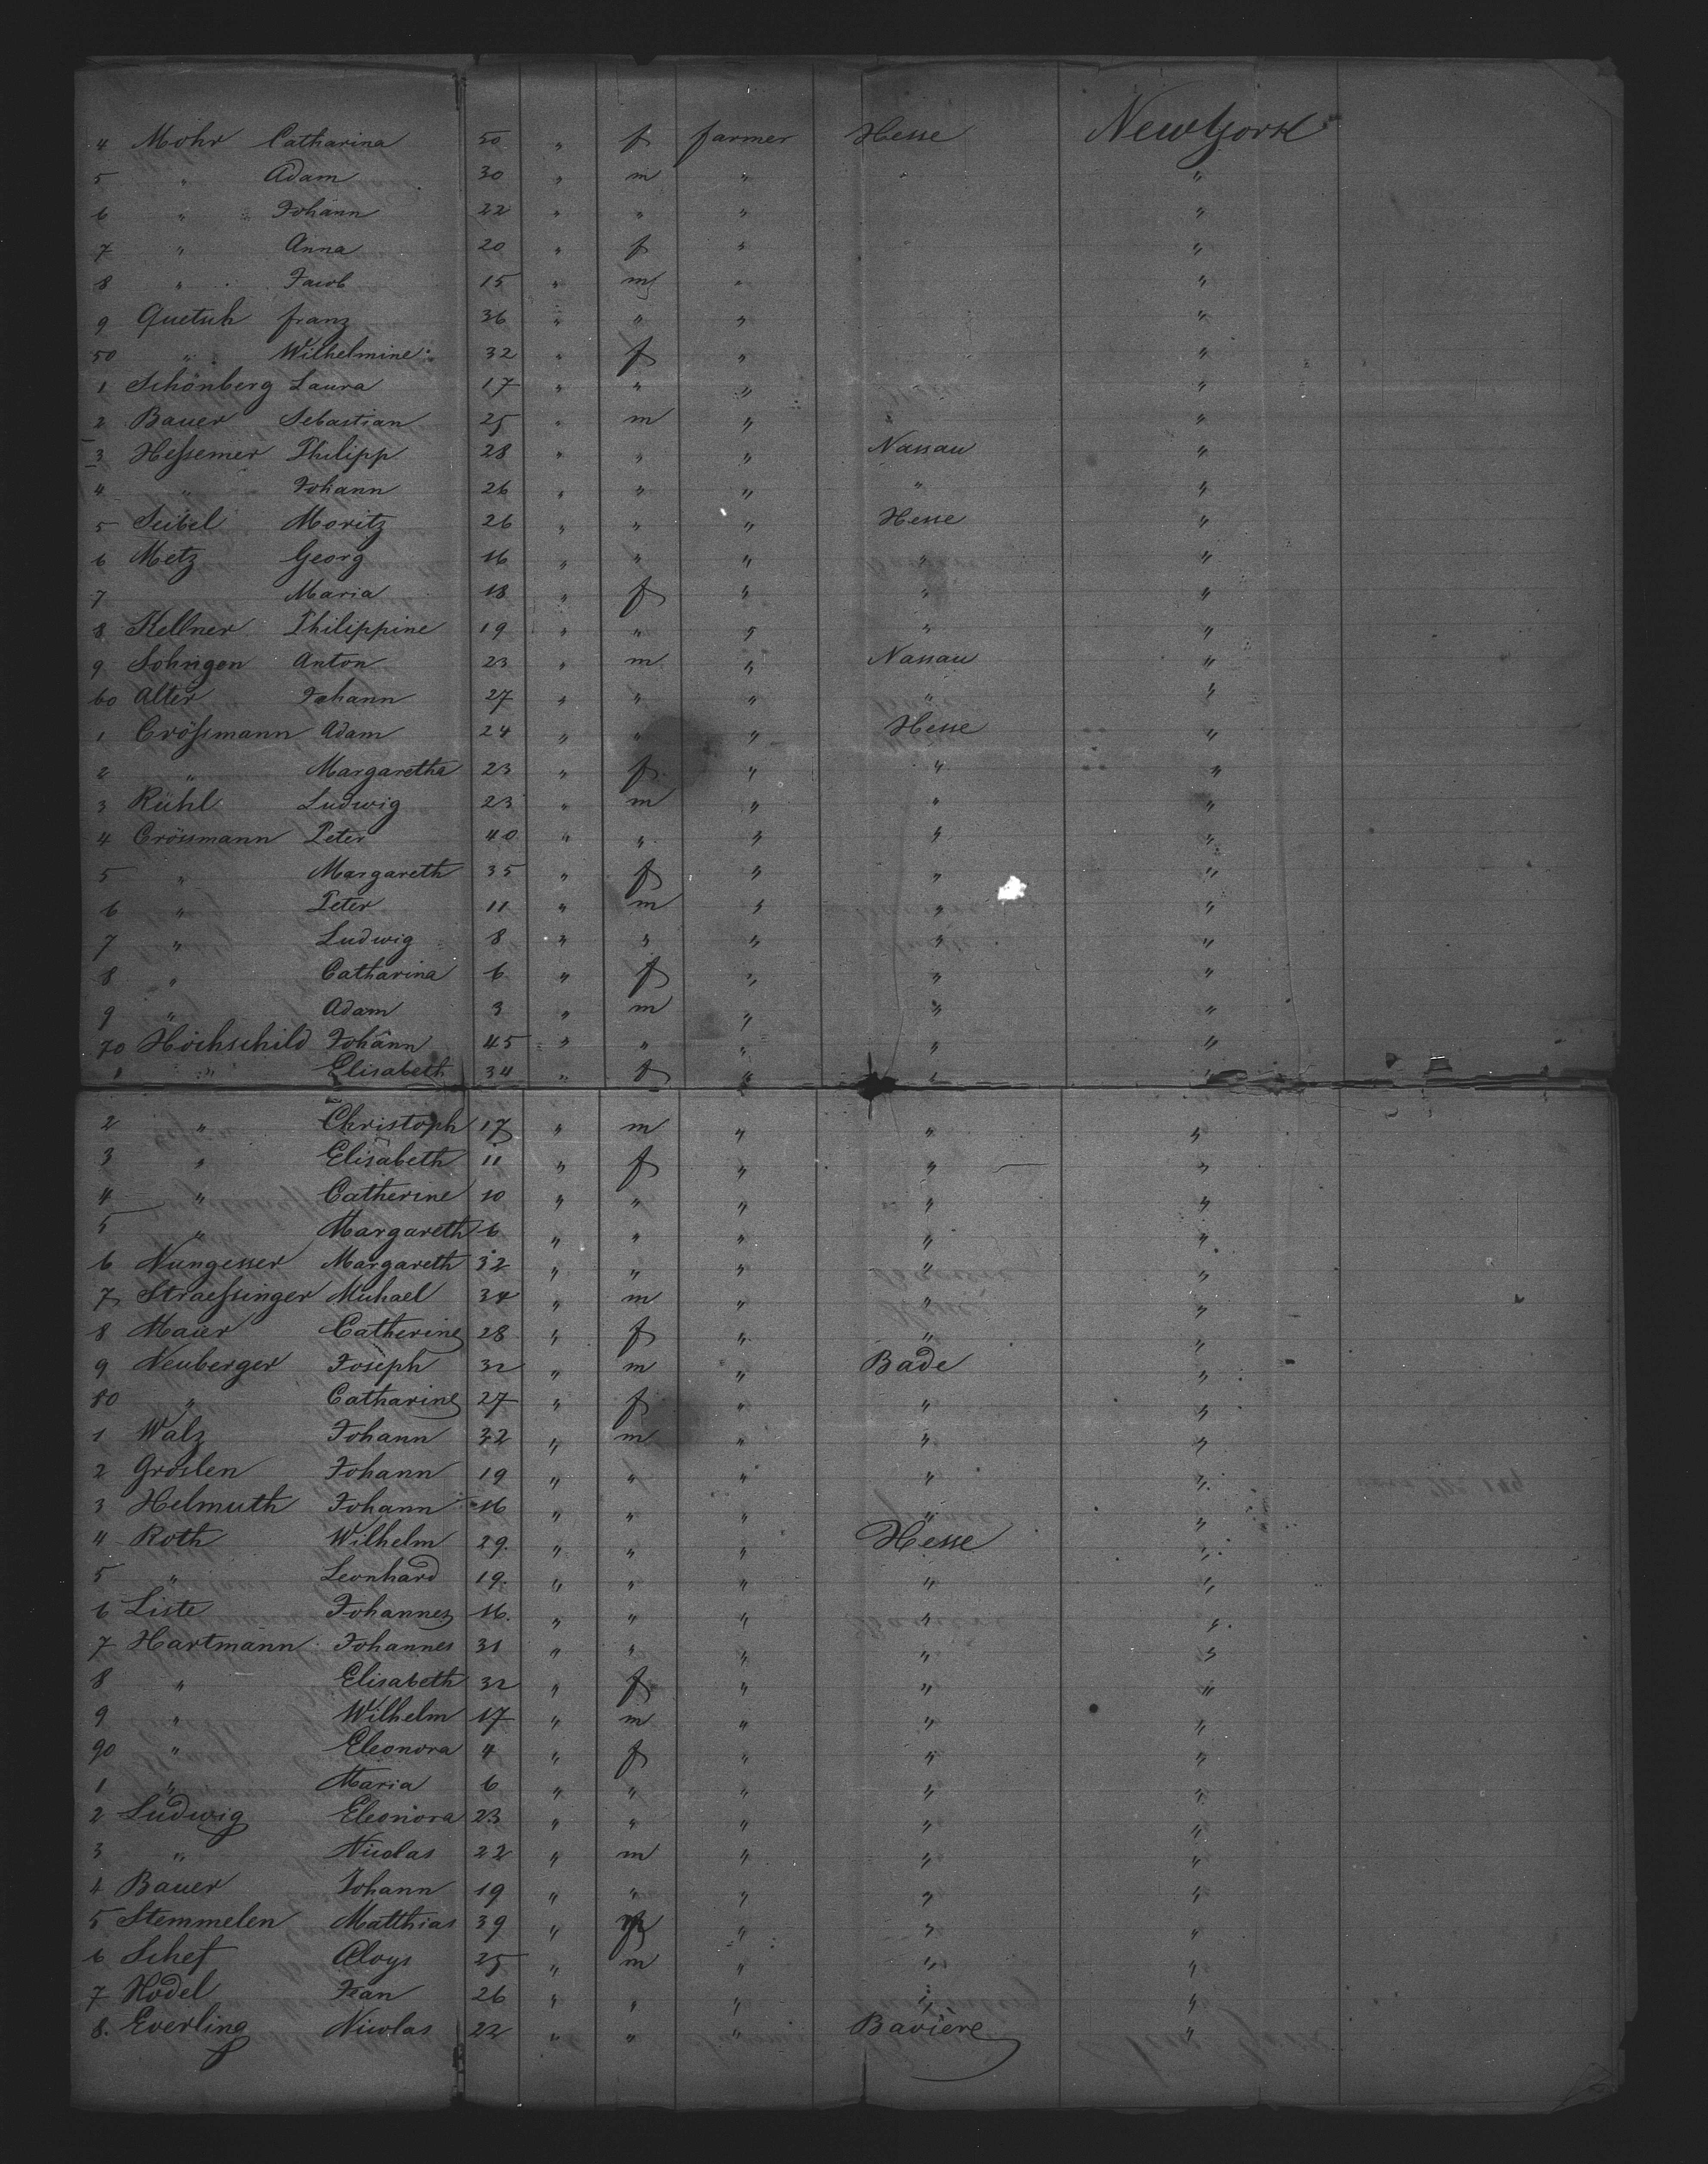 4 Mohr Catharina 50 " f farmer Hesse New York
5 " Adam 30 " m " "
6 " Johann 22 " " " "
7 " Anna 20 " f " "
8 " Jacob 15 " m " "
9 Quetsch franz 36 " " " "
50 " Wilhelmine 32 " f " "
1 Schönberg Laura 17 " " " "
2 Bauer Sebastian 25 " m " "
3 Heßemer Philipp 28 " " " Nassau "
4 " Johann 26 " " " " "
5 Seibel Moritz 26 " " " Hesse "
6 Metz Georg 16 " " " " "
7 Maria 18 " f " " "
8 Kellner Philippine 19 " " " " "
9 Anton 23 " m " Nassau "
60 Alter Johann 27 " " " " "
1 Crößmann Adam 24 " " " Hesse "
2 " Margaretha 23 " f " " "
3 Rühl Ludwig 23 " m " " "
4 Crössmann Peter 40 " " " " "
5 " Margareth 35 " f " " "
6 " Peter 11 " m " " "
7 " Ludwig 8 " " " " "
8 " Catharina 6 " f " " "
9 " Adam 3 " m " " "
70 Hochschild Johann 45 " " " " "
1 " Elisabeth 34 " f " " "
2 " Christoph 17 " m " " "
3 " Elisabeth 11 " f " " "
4 " Catherine 10 " " " " "
5 " Margareth 6 " " " " "
6 Nungesser Margareth 32 " " " " "
7 Straeßinger Michael 34 " m " " "
8 Maier Catherine 28 " f " " "
9 Neuberger Joseph 32 " m " Bade "
80 " Catharine 27 " f " " "
1 Walz Johann 32 " m " " "
2 Groslen Johann 19 " " " " "
3 Helmuth Johann 16 " " " " "
4 Roth Wilhelm 29. " " " Hesse "
5 " Leonhard 19. " " " " "
6 Liste Johannes 16. " " " " "
7 Hartmann Johannes 31 " " " " "
8 " Elisabeth 32 " f " " "
9 " Wilhelm 17 " m " " "
90 " Eleonora 4 " f " " "
1 " Maria 6 " " " " "
2 Ludwig Eleonora 23 " " " " "
3 " Nicolas 22 " m " " "
4 Bauer Johann 19 " " " " "
5 Stemmelen Matthias 39 " " " "
6 Schef Aloys 25 " m " " "
7 Hodel Jean 26 " " " " "
8. Everling Nicolas 22 " " " Bavière "